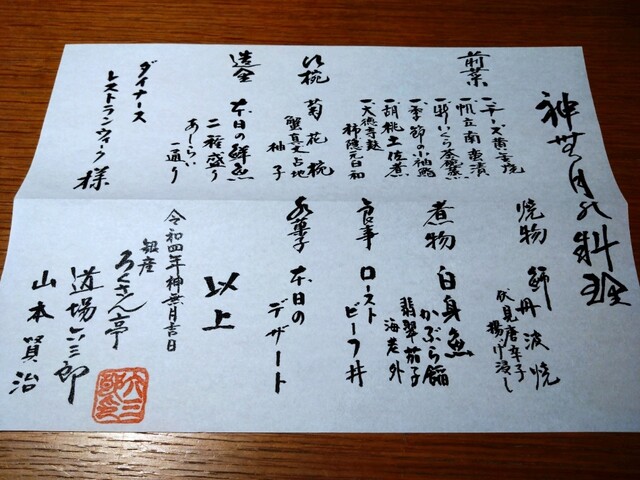 神無月の料理
前菜
一、チーズ黄金焼
一、帆立南蛮漬
一、新いくら茶碗蒸
一、季節の小袖鮨
一、胡桃土佐煮
一、大徳寺麩
柿隠元白和
吸椀
菊花椀
蟹真丈 占地
柚子
造里
本日の鮮魚
二種盛り
あしらい一通り
ダイナース
レストランウィーク 様
焼物 鰤丹波焼
伏見唐辛子
揚げ浸し
煮物 白身魚
かぶら餡
翡翠茄子
海老 外
食事 ロースト
ビーフ丼
水菓子 本日の
デザート
以上
令和四年神無月吉日
銀座
ろくさん亭
道場六三郎
山本賢治